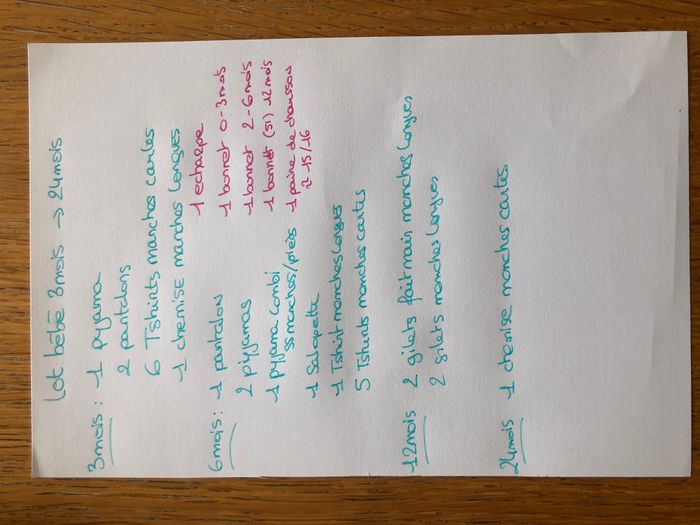 Lot bébé 3mois → 24mois
3mois : 1 pyjama
2 pantalons
6 Tshirts manches cartes
1 chemise manches longues
1 echarpe
1 bonnet 0-3mois
1 bonnet 2-6mois
1 bonnet (51) 12mois
1 paire de chausson
15/16
6mois : 1 pantalon
2 pyjamas
1 pyjama combi
ss manches/pieds
1 Salopette
1 Tshirt manches longues
5 Tshirts manches cartes
12mois 2 gilets fait main manches longues
2 gilets manches longues
24mois 1 chemise manches cartes